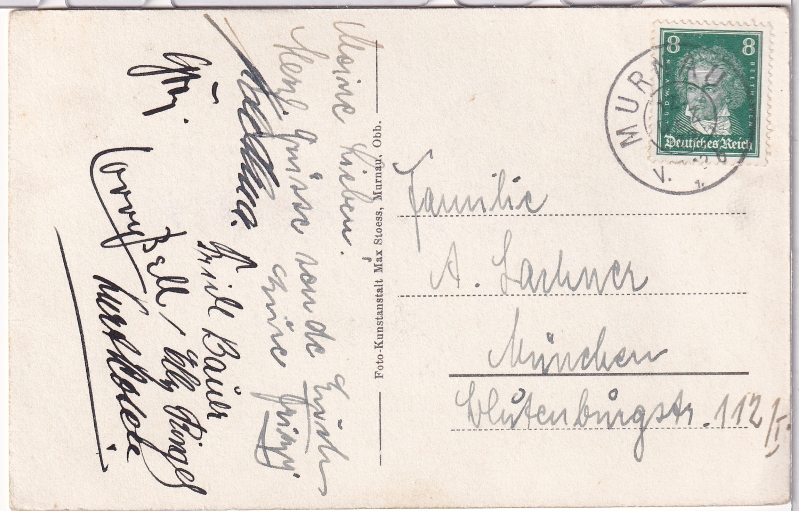 Meine Lieben.
Herzl. Grüsse von de
Eure
Friedl Bauer
Corry Bell / Elly Ringel
Foto-Kunstanstalt Max Stoess, Murnau, Obb.
8 8
LUDW. V. BEETHOVEN
Deutsches Reich
MURNAU
Familie
A. Lachner
München
Blutenburgstr. 112/I.